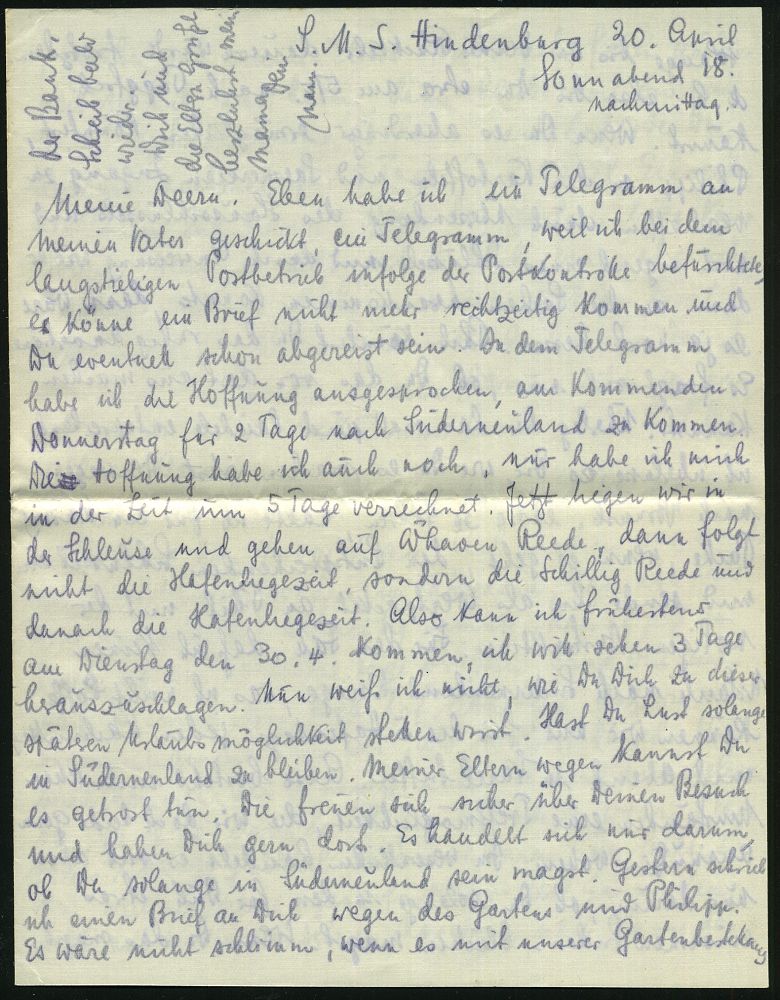 S. M. S. Hindenburg 20. April
Sonnabend 18.
nachmittag.
Meine Deern. Eben habe ich ein Telegramm an
meinen Vater geschickt, ein Telegramm, weil ich bei dem
langstieligen Postbetrieb infolge der Postkontrolle befürchtete,
es könne ein Brief nicht mehr rechtzeitig kommen und
Du eventuell schon abgereist sein. In dem Telegramm
habe ich die Hoffnung ausgesprochen, am kommenden
Donnerstag für 2 Tage nach Süderneuland zu kommen.
Die Hoffnung habe ich auch noch, nur habe ich mich
in der Zeit um 5 Tage verrechnet. Jetzt liegen wir in
der Schleuse und gehen auf Whaven Reede, dann folgt
nicht die Hafenliegezeit, sondern die Schillig Reede und
danach die Hafenliegezeit. Also kann ich frühestens
am Dienstag den 30.4. kommen, ich will sehen 3 Tage
herauszuschlagen. Nun weiß ich nicht, wie Du Dich zu dieser
späteren Urlaubsmöglichkeit stellen wirst. Hast Du Lust solange
in Süderneuland zu bleiben. Meiner Eltern wegen kannst Du
es getrost tun. Die freuen sich sicher über Deinen Besuch
und haben Dich gern dort. Es handelt sich nur darum,
ob Du solange in Süderneuland sein magst. Gestern schrieb
ich einen Brief an Dich wegen des Gartens und Philipp.
Es wäre nicht schlimm, wenn es mit unserer Gartenbestellung
der Bank
Schreib bald
wieder
Dich und
die Eltern grüße
herzlichst mein
Mama
Dein
Mann.